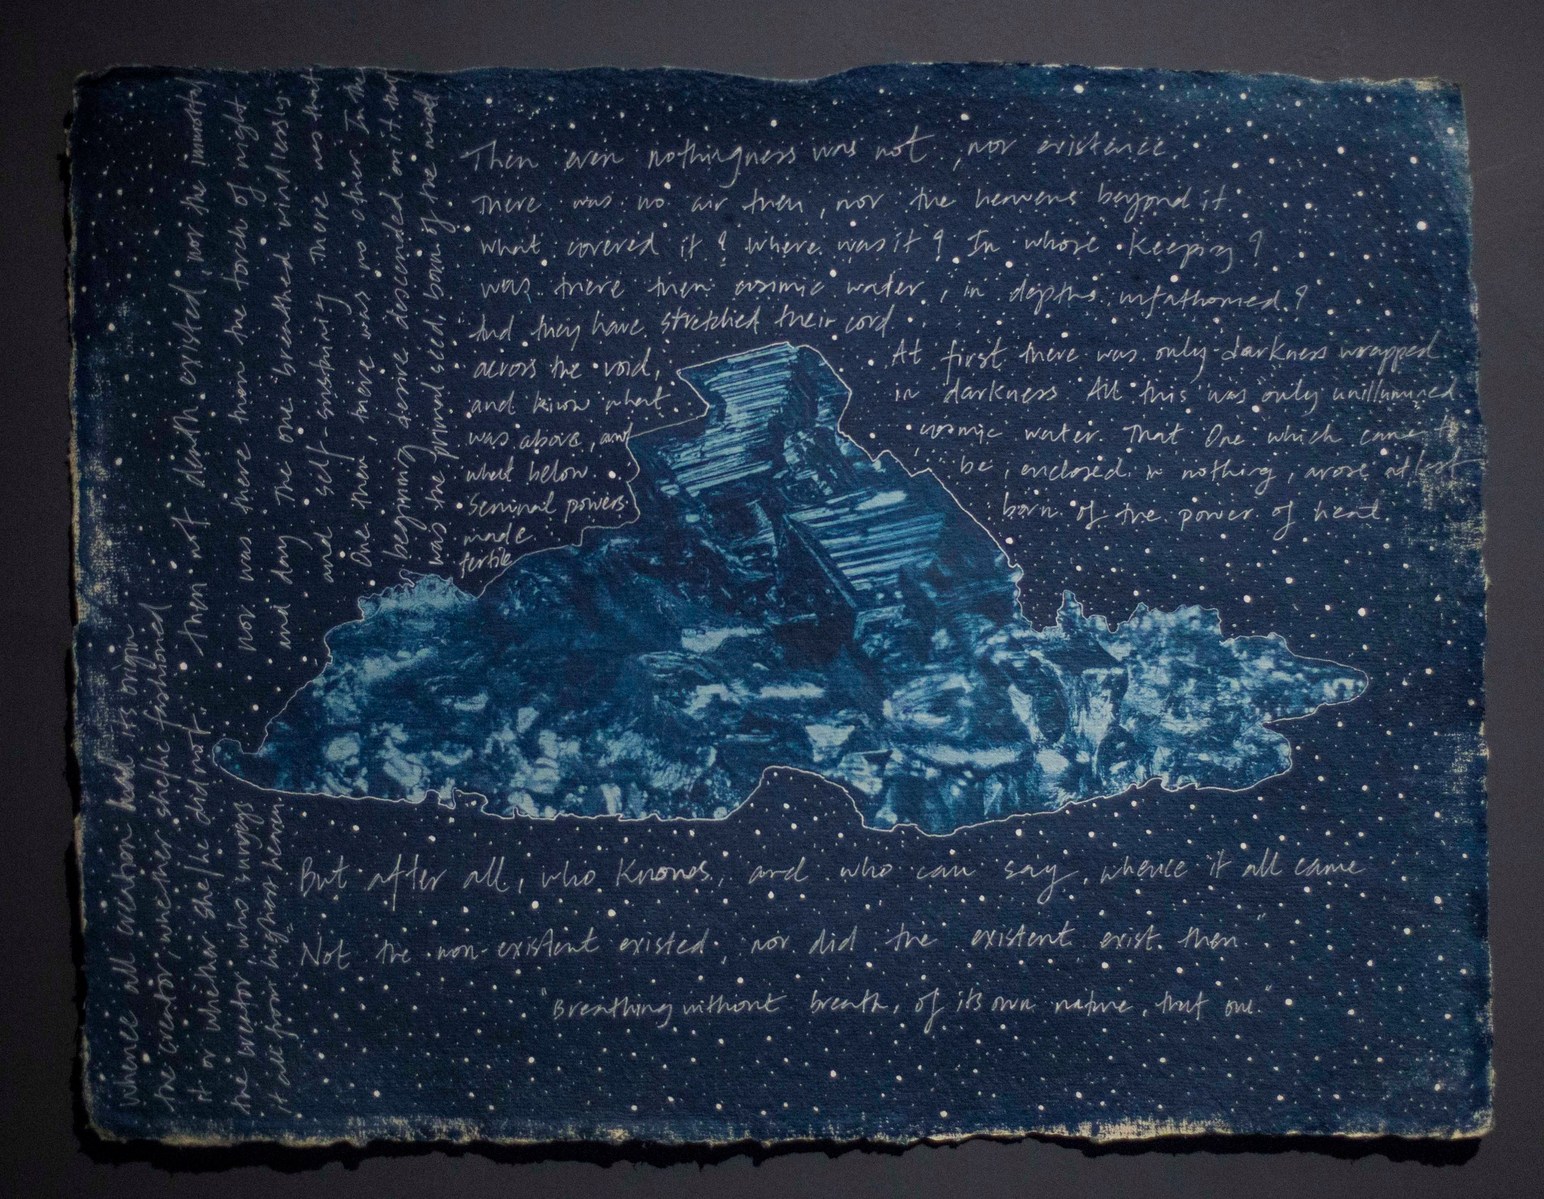 Then even nothingness was not, nor existence
There was no air then, nor the heavens beyond it
what covered it? Where was it? In whose keeping?
was there then cosmic water, in depths unfathomed?
And they have stretched their cord
across the void,
and know what
was above, and
what below
Seminal powers
made
fertile
At first there was only darkness wrapped
in darkness All this was only unillumined
cosmic water. That One which came
be, enclosed in nothing, arose at last
born of the power of heat.
Then not death existed, nor the immortal
nor was there then the torch of night
and day The one breathed windlessly
and self-sustaining There was that
One then, there was no other In the
beginning desire descended on it that
was the primal seed, born of the mind
whence all creation had its origin
the creator, whether she/he fashioned
it or whether she/he did not
the creator who surveys
it all from highest heaven
But after all, who knows, and who can say, whence it all came
Not the non-existent existed, nor did the existent exist then"
"Breathing without breath, of its own nature, that one"